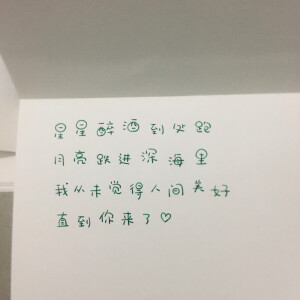 星星醉酒到处跑
月亮跌进深海里
我从未觉得人间美好
直到你来了♡